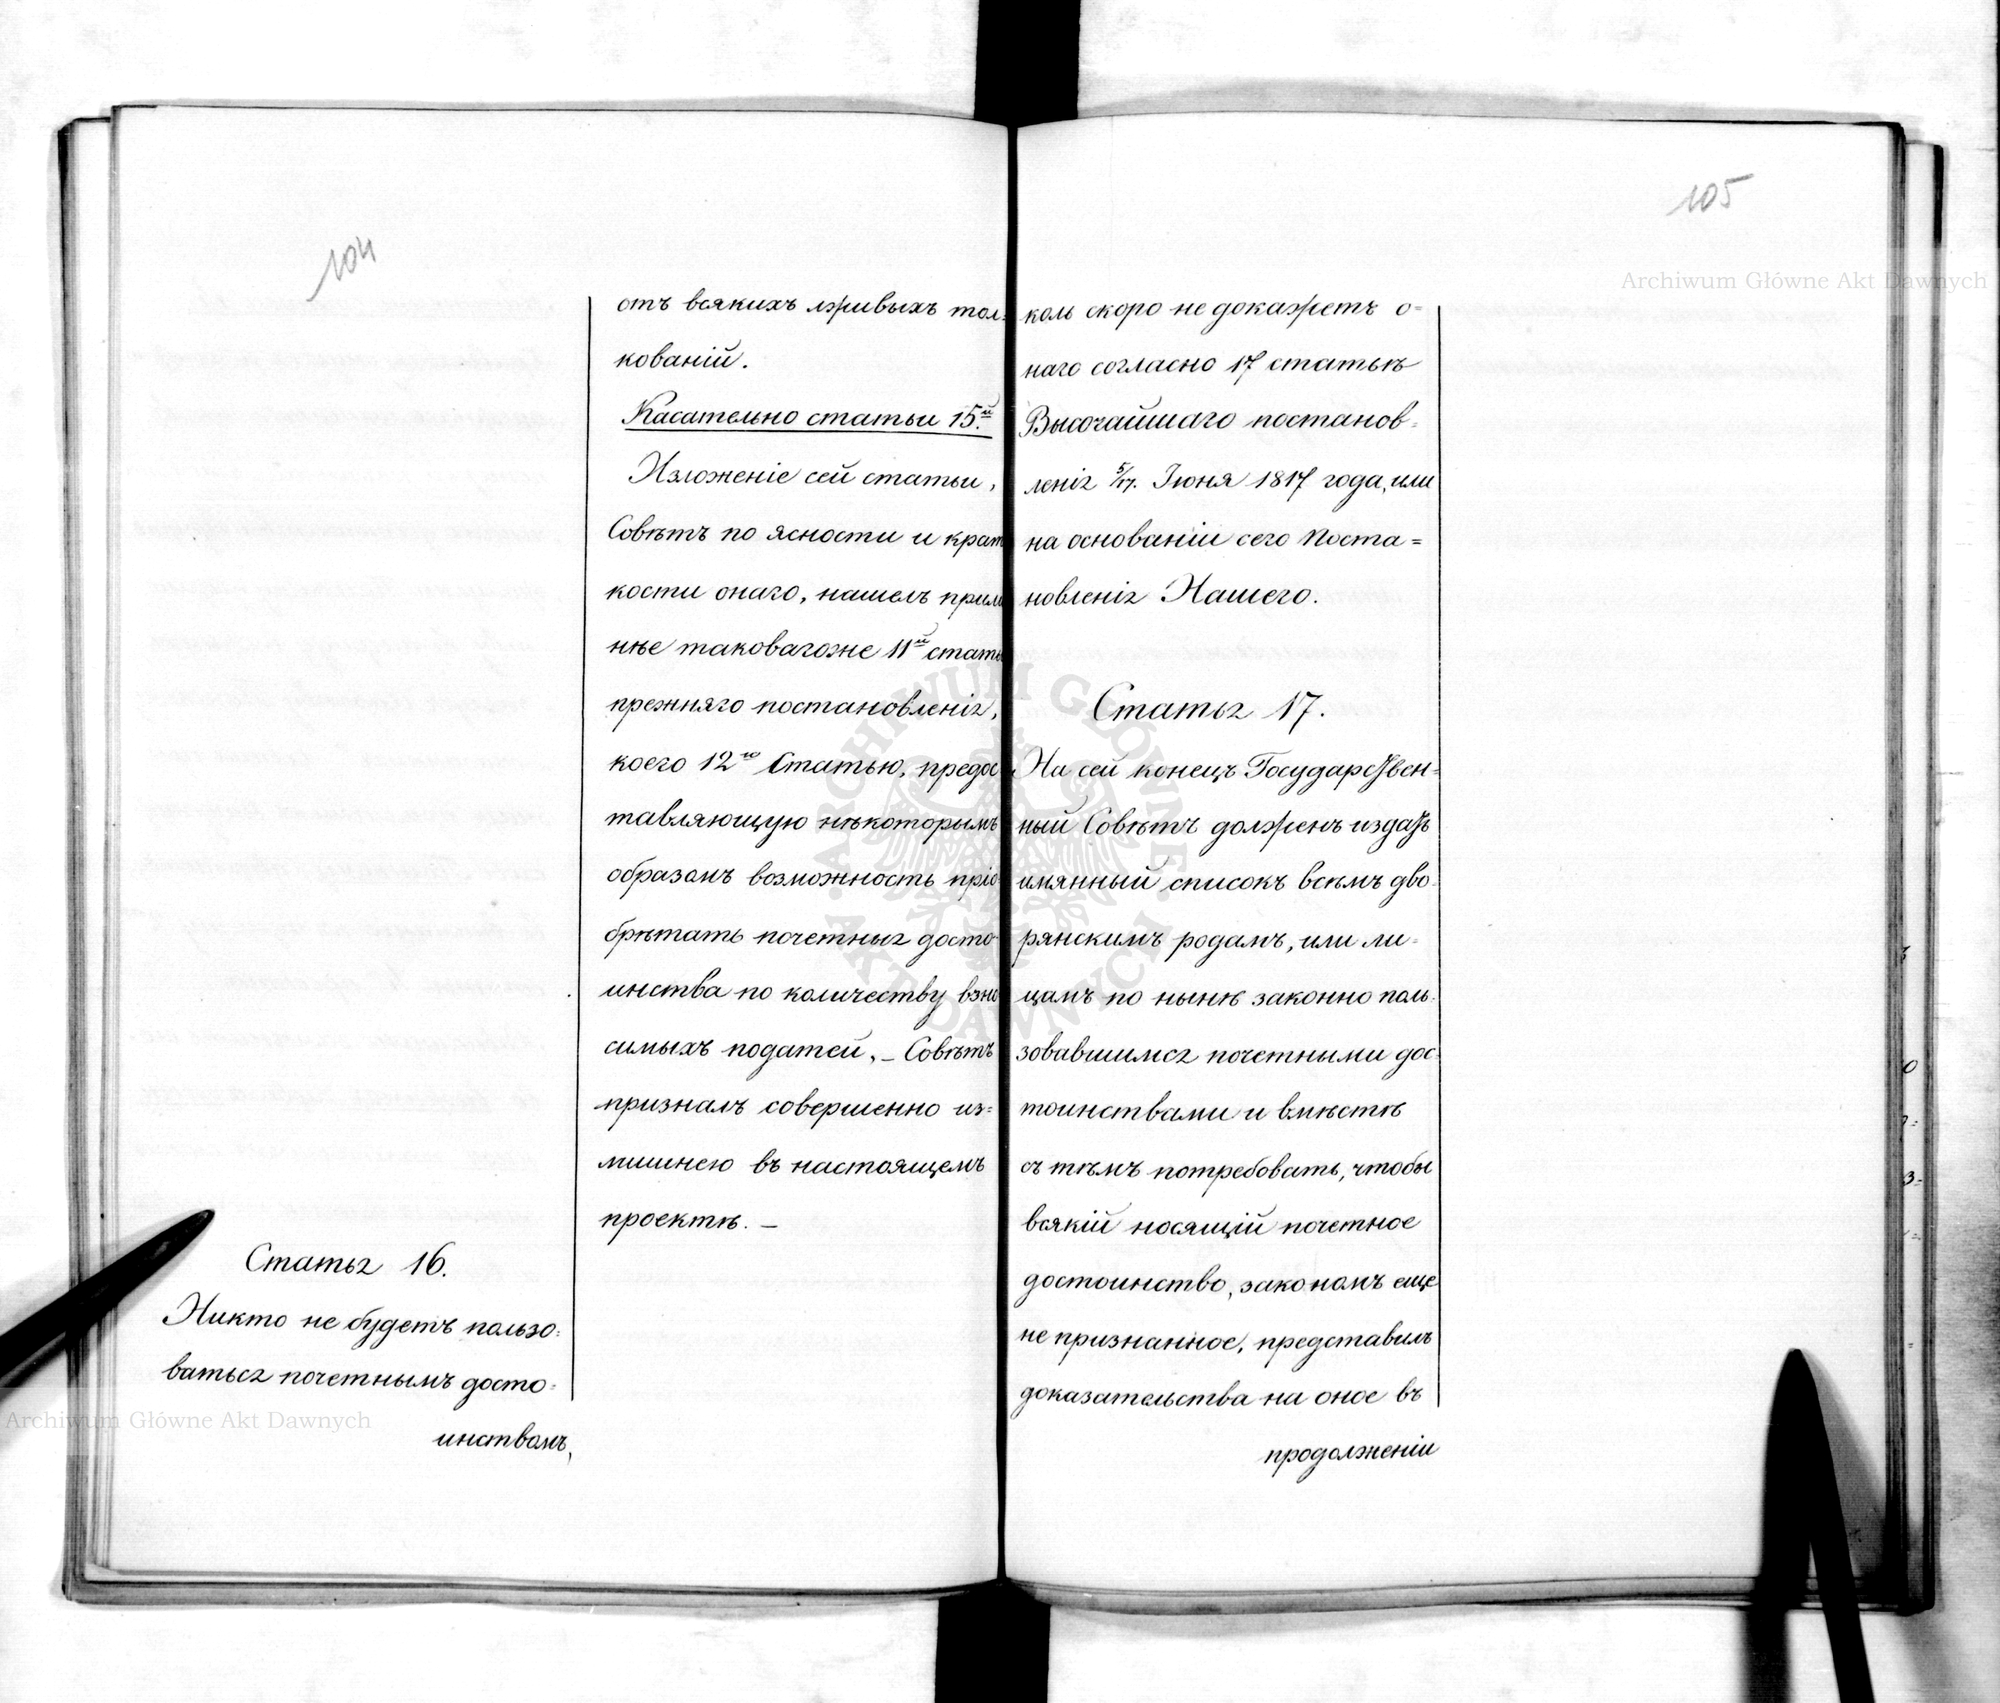 104
отъ всякихъ лживыхъ тол-
кованій.
Касательно статьи 15.й
Изложеніе сей статьи,
Совѣтъ по ясности и крат
кости онаго, нашелъ прили
нѣе таковагоже 11й стать
прежняго постановленія,
коего 12ю Статью, предос
тавляющую нѣкоторымъ
образомъ возможность пріо-
брѣтать почетныя досто-
инства по количеству взно
симыхъ податей, – Совѣтъ
призналъ совершенно из=
лишнею въ настоящемъ
проектѣ. –
Статья 16.
Никто не будетъ пользо=
ваться почетнымъ досто=
инствомъ,
105
коль скоро не докажетъ о=
наго согласно 17 статьѣ
Высочайшаго постанов=
ленія 5/17. Іюня 1817 года, или
на основаніи сего Поста=
новленія Нашего.
Статья 17.
На сей конецъ Государствен=
ный Совѣтъ долженъ издать
имянный списокъ всѣмъ дво-
рянскимъ родамъ, или ли=
цамъ по нынѣ законно поль-
зовавшимся почетными дос-
тоинствами и вмѣстѣ
съ тѣмъ потребовать, чтобы
всякій носящій почетное
достоинство, закономъ еще
не признанное, представилъ
доказательства на оное въ
продолженіи
Archiwum Główne Akt Dawnych
Archiwum Główne Akt Dawnych
ARCHIWUM GŁÓWNE AKT DAWNYCH